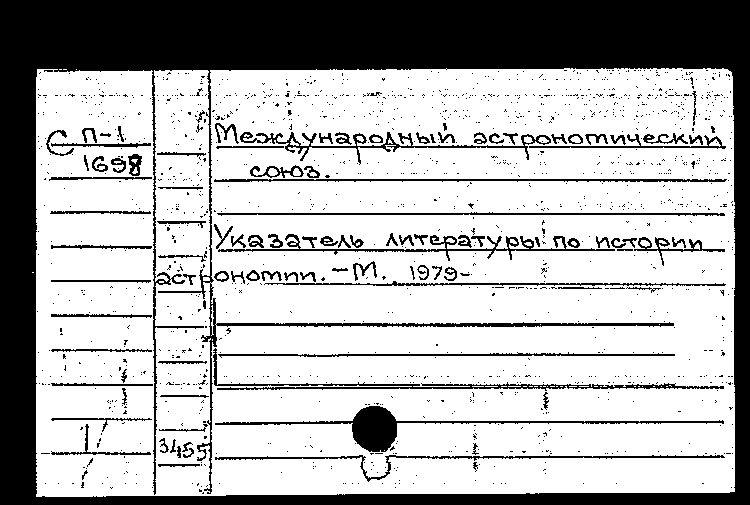 С П-1
1698
Международный астрономический
союз.
Указатель литературы по истории
астрономии. - М. 1979-
1/
3455